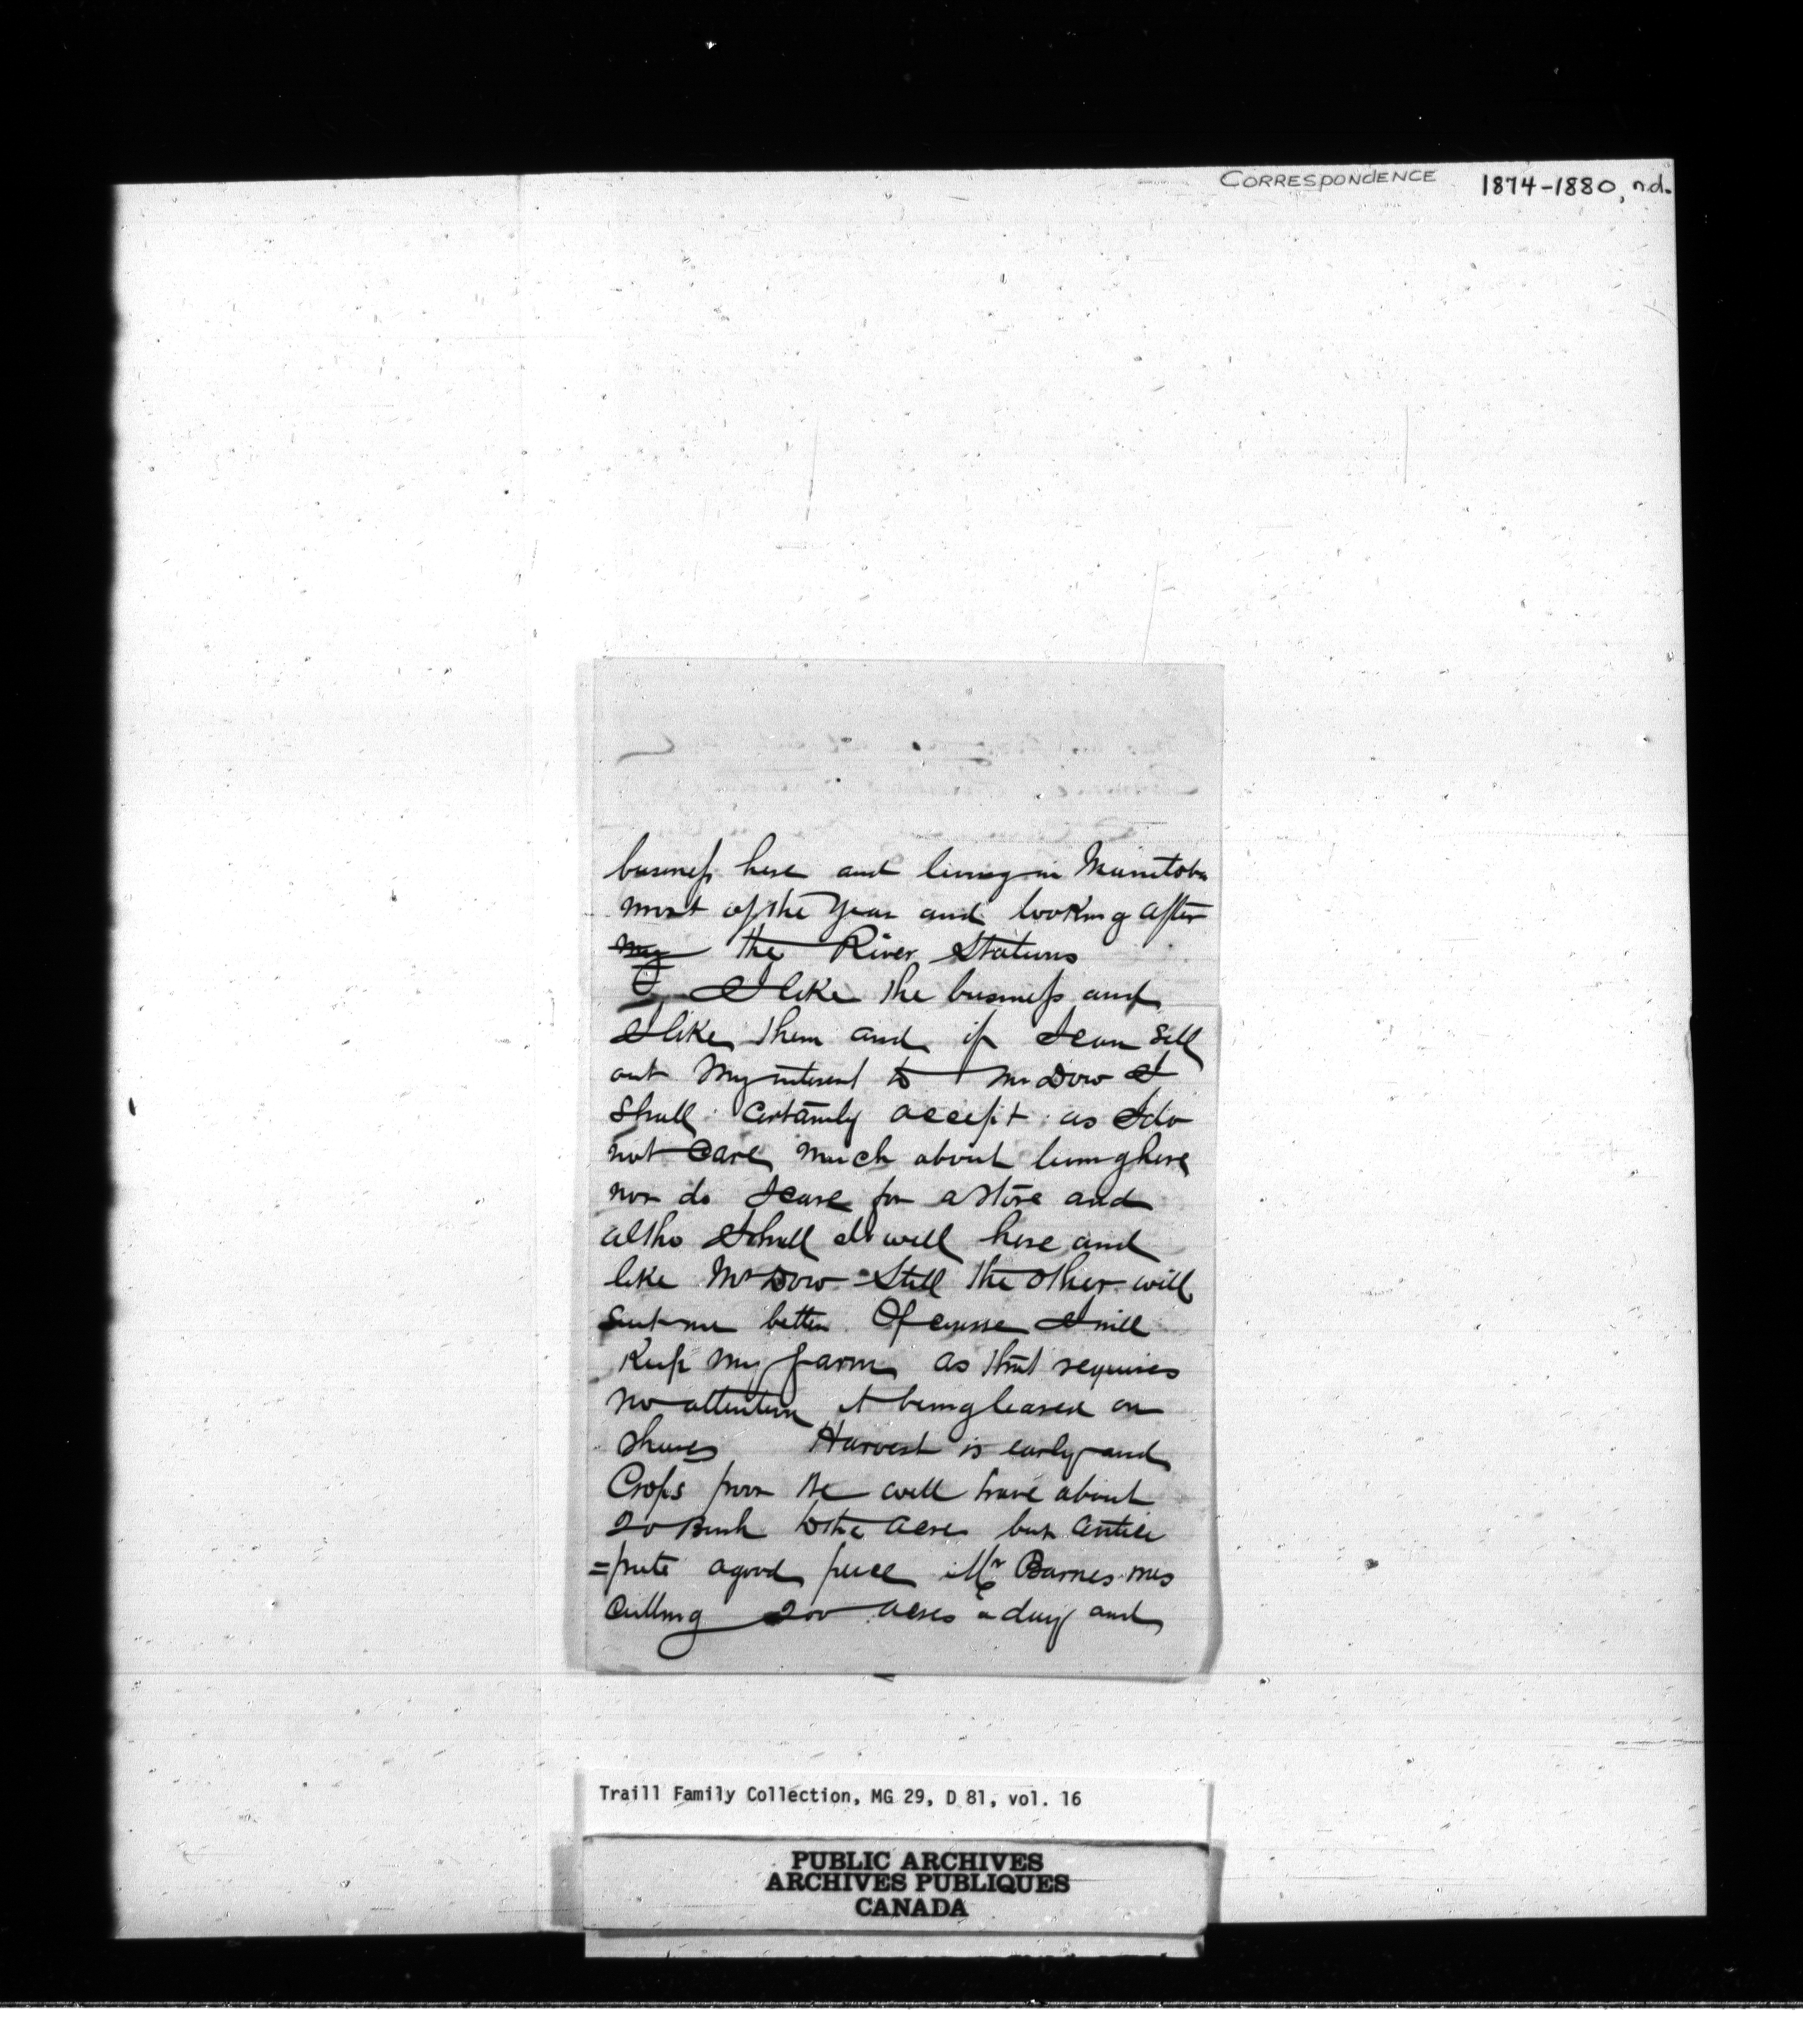 CORRESPONDENCE 1874-1880, n.d.
business here and living in Manitoba
most of the Year and looking after
my the River Stations
I like the business and
I like them and if I can sell
out My interest to Mr Dow I
Shall Certainly accept as I do
not Care much about living here
nor do I care for a Store and
altho I shall do well here and
like Mr Dow Still the other will
suit me better Of course I will
Keep my farm as that requires
no attention it being leased on
Shares Harvest is early and
Crops poor We will have about
20 Bush to the acre but antici
=pate a good price Mr Barnes was
Cutting 200 acres a day and
Traill Family Collection, MG 29, D 81, vol. 16
PUBLIC ARCHIVES
ARCHIVES PUBLIQUES
CANADA